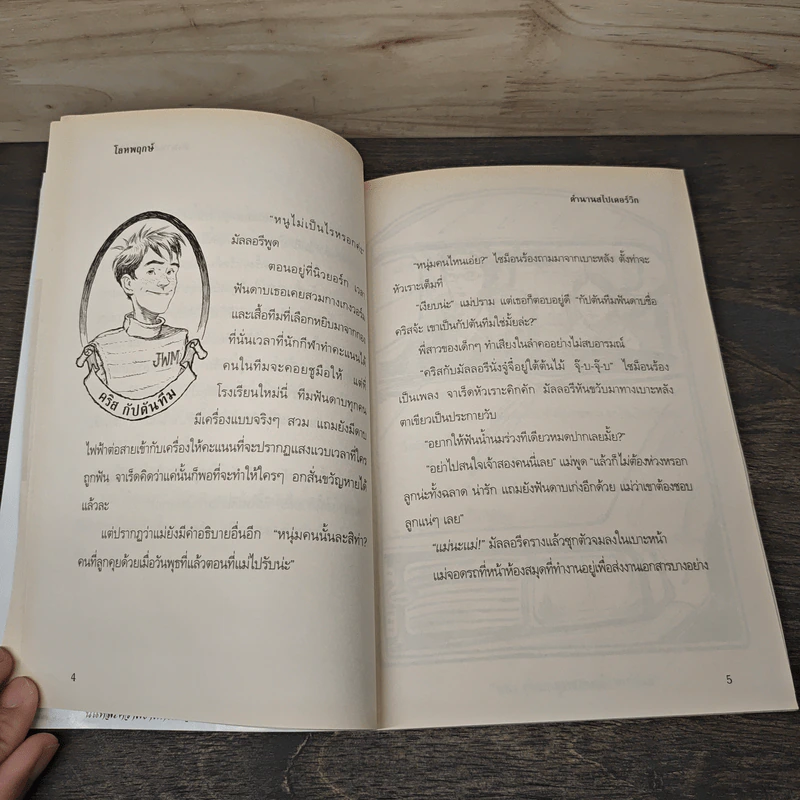 โลหพฤกษ์
"หนูไม่เป็นไรหรอกค่ะ"
มัลลอรีพูด
ตอนอยู่ที่นิวยอร์ก เวลา
ฟันดาบเธอเคยสวมกางเกงวอร์ม
และเสื้อทีมที่เลือกหยิบมาจากกอง
ที่นั่นเวลาที่นักกีฬาทำคะแนนได้
คนในทีมจะคอยชูมือให้ แต่ที่
โรงเรียนใหม่นี่ ทีมฟันดาบทุกคน
มีเครื่องแบบจริงๆ สวม แถมยังมีดาบ
ไฟฟ้าต่อสายเข้ากับเครื่องให้คะแนนที่จะปรากฏแสงแวบเวลาที่ใคร
ถูกฟัน จาเร็ดคิดว่าแค่นั้นก็พอที่จะทำให้ใครๆ อกสั่นขวัญหายได้
แล้วละ
แต่ปรากฏว่าแม่ยังมีคำอธิบายอื่นอีก "หนุ่มคนนั้นละสิท่า?
คนที่ลูกคุยด้วยเมื่อวันพุธที่แล้วตอนที่แม่ไปรับน่ะ"
JWM
คริส กัปตันทีม
4
ตำนานสไปเดอร์วิก
"หนุ่มคนไหนเอ่ย?" ไซม็อนร้องถามมาจากเบาะหลัง ตั้งท่าจะ
หัวเราะเต็มที่
"เงียบน่ะ" แม่ปราม แต่เธอก็ตอบอยู่ดี "กัปตันทีมฟันดาบชื่อ
คริสจ้ะ เขาเป็นกัปตันทีมใช่มั้ยล่ะ?"
พี่สาวของเด็กๆ ทำเสียงในลำคออย่างไม่สบอารมณ์
"คริสกับมัลลอรีนั่งจู๋จี๋อยู่ใต้ต้นไม้ จุ๊บ-จุ๊บ-จุ๊บ" ไซม็อนร้อง
เป็นเพลง จาเร็ดหัวเราะคิกคัก มัลลอรีหันขวับมาทางเบาะหลัง
ตาเขียวเป็นประกายวับ
"อยากให้ฟันน้ำนมร่วงทีเดียวหมดปากเลยมั้ย?"
"อย่าไปสนใจเจ้าสองคนนี่เลย" แม่พูด "แล้วก็ไม่ต้องห่วงหรอก
ลูกน่ะทั้งฉลาด น่ารัก แถมยังฟันดาบเก่งอีกด้วย แม่ว่าเขาต้องชอบ
ลูกแน่ๆ เลย"
"แม่นะแม่!" มัลลอรีครางแล้วซุกตัวจมลงในเบาะหน้า
แม่จอดรถที่หน้าห้องสมุดที่ทำงานอยู่เพื่อส่งงานเอกสารบางอย่าง
5